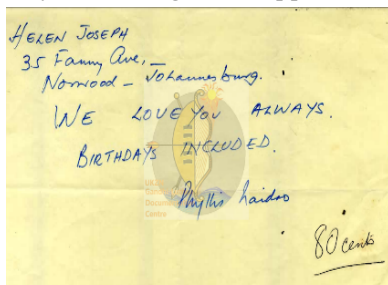 HELEN JOSEPH
35 Fanny Ave, —
Norwood – Johannesburg.
WE LOVE YOU ALWAYS.
BIRTHDAYS INCLUDED.
Phyllis Naidoo
80 cents
Docume
Centre